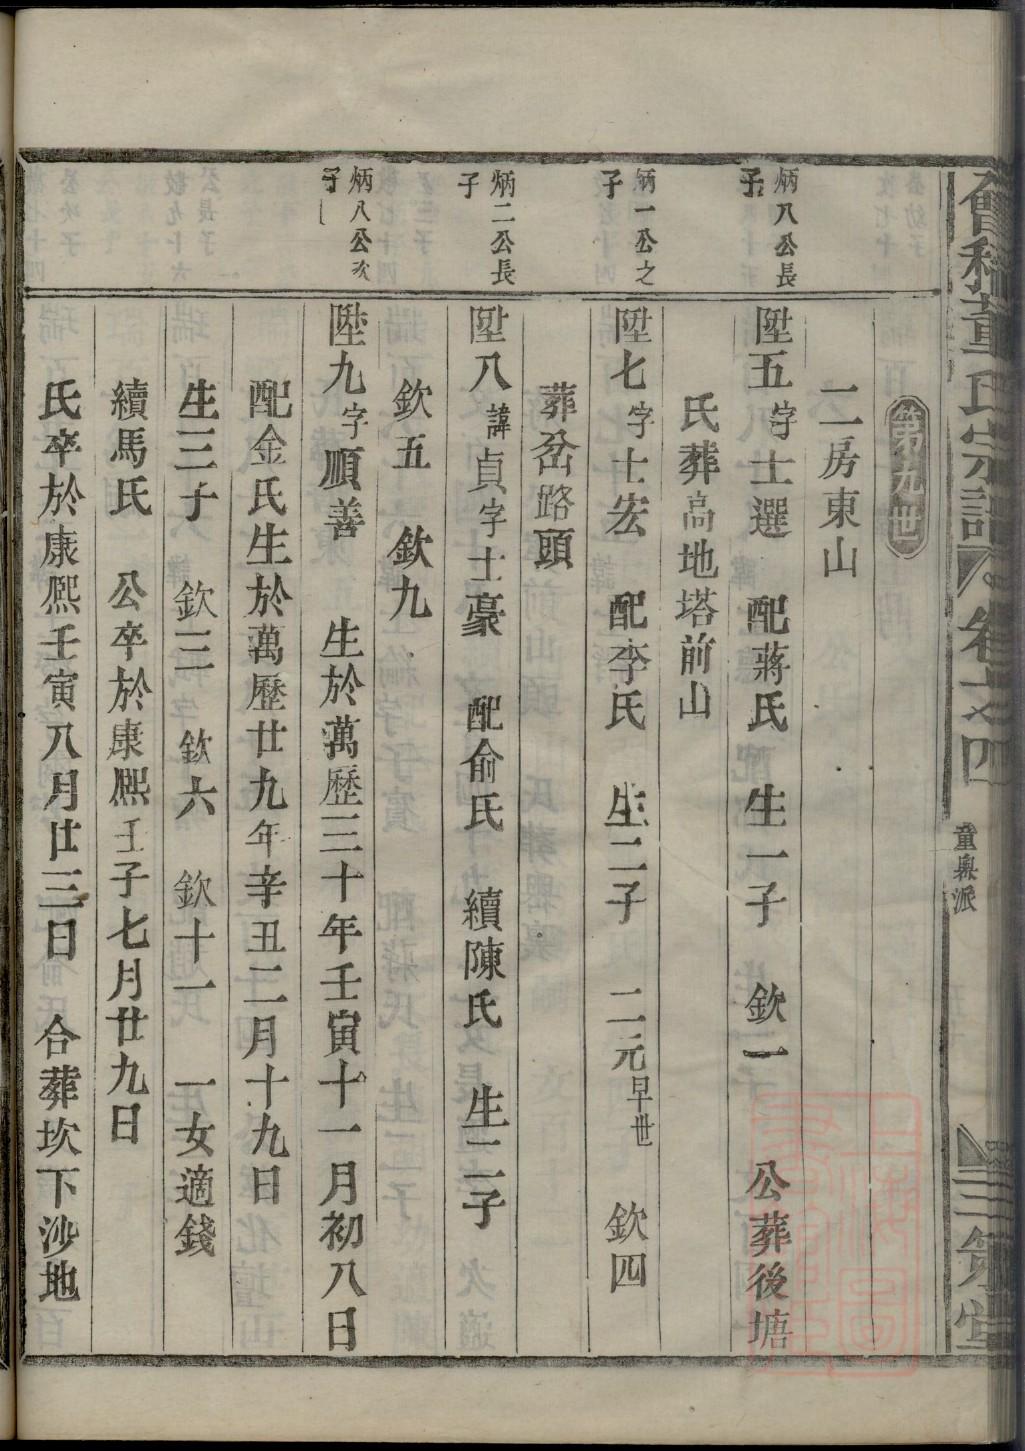 會稽董氏宗譜 卷之四 童墺派 三策堂
第九世
二房東山
炳八公長子
陞五字士選 配蔣氏 生一子 欽一 公葬後塘
氏葬高地塔前山
炳一公之子
陞七字士宏 配李氏 生二子 二元早世 欽四
葬岔路頭
炳二公長子
陞八諱貞字士豪 配俞氏 續陳氏 生二子
欽五 欽九
炳八公次子
陞九字順善 生於萬歷三十年壬寅十一月初八日
配金氏生於萬歷廿九年辛丑二月十九日
生三子 欽三 欽六 欽十一 一女適錢
續馬氏 公卒於康熙壬子七月廿九日
氏卒於康熙壬寅八月廿三日 合葬坎下沙地